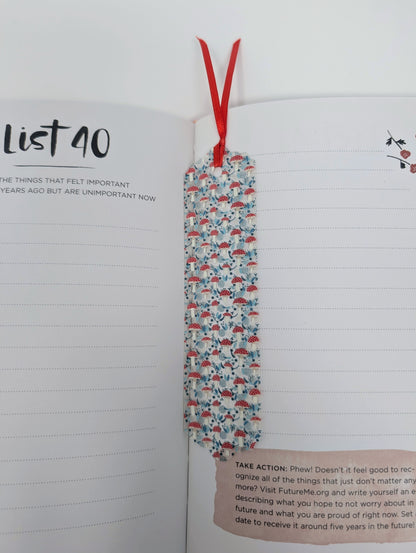 List 40
THE THINGS THAT FELT IMPORTANT
YEARS AGO BUT ARE UNIMPORTANT NOW
TAKE ACTION: Phew! Doesn't it feel good to rec-
ognize all of the things that just don't matter any
more? Visit FutureMe.org and write yourself an e
describing what you hope to not worry about in
future and what you are proud of right now. Set
date to receive it around five years in the future!